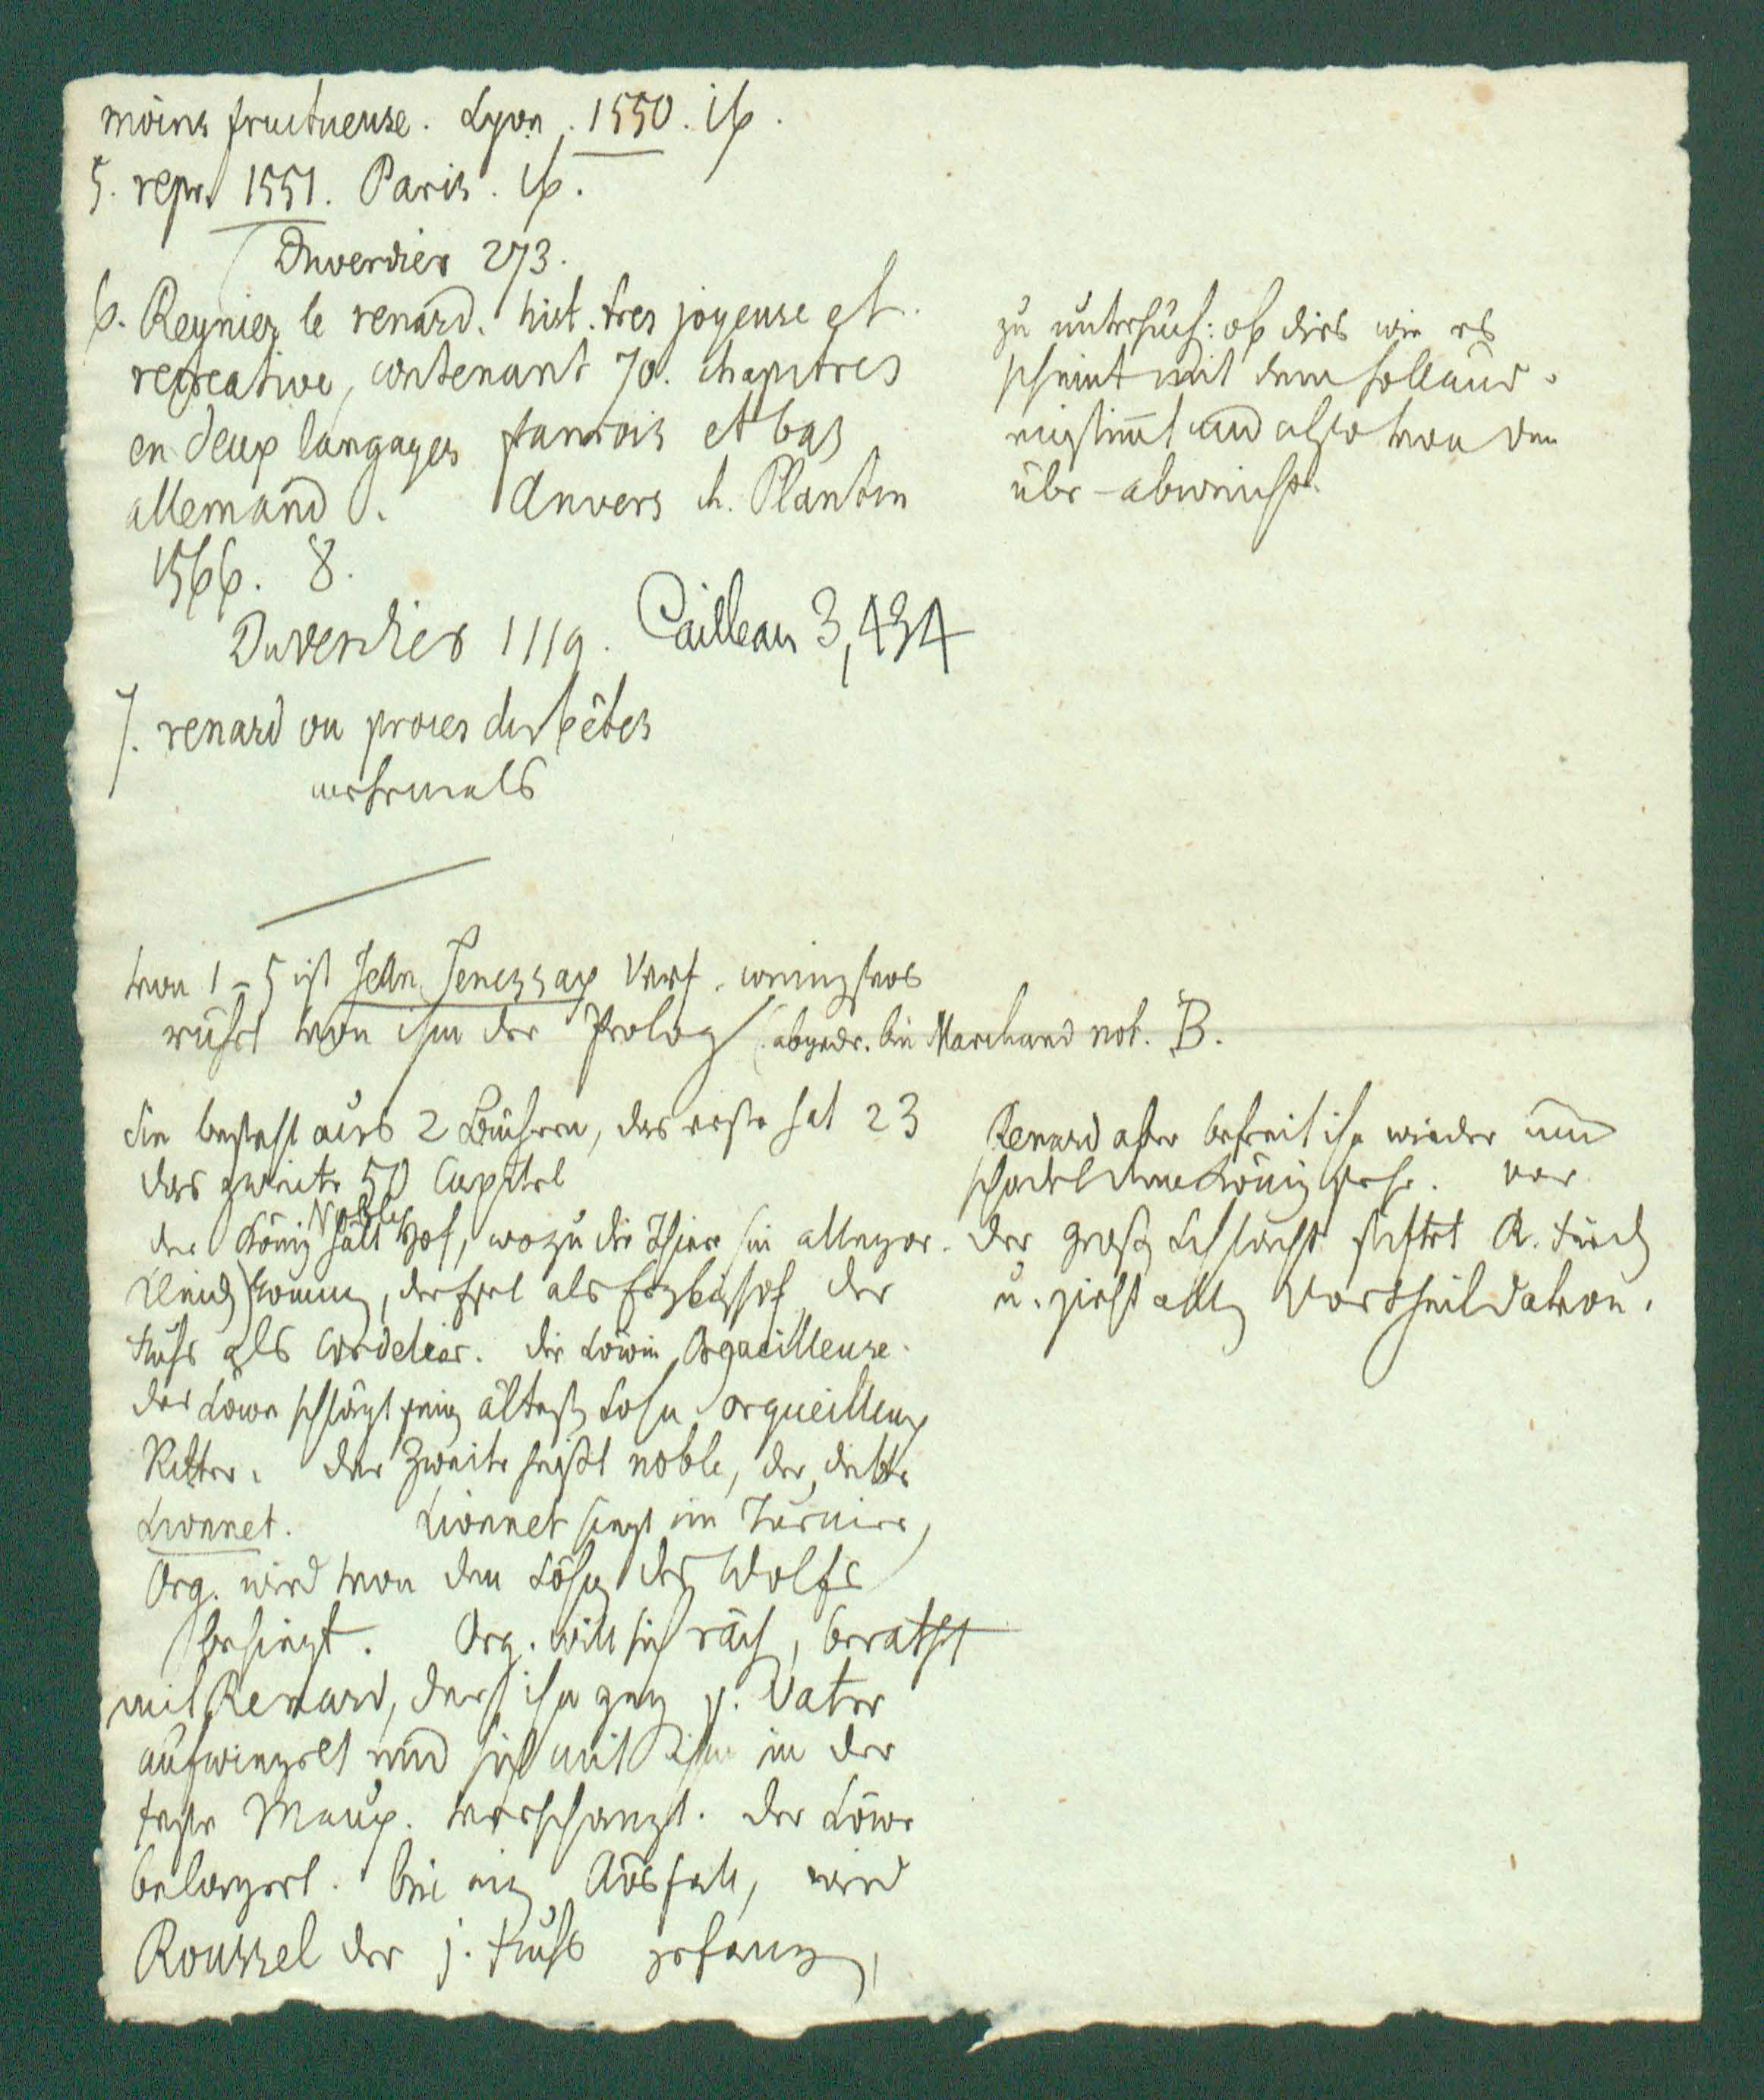 moins fructueuse. Lyon. 1550. 16.
5. repr. 1551. Paris. 16.
Duverdier 273.
6. Reynier le renard. hist. tres joyeuse et
recreative, contenant 70. chapitres
en deux langages francois et bas
allemand. Anvers ch. Plantin
1566. 8.
Duverdier 1119. Cailleau 3,434
7. renard ou proces des bêtes
mehrmals
zu untersuch: ob dies wie es
scheint mit dem holländ.
einstimt und also von den
übr. abweicht.
von 1-5 ist Jean Tenessax Verf. wenigstens
rührt von ihm der Prolog (abgedr. bei Marchand not. B.
Sie besteht aus 2 Büchern, das erste hat 23
das zweite 50 Capitel
der König Noble hält Hof, wozu die Thiere (in allegor.
Kleid) komen, der Esel als Erzbischof der
Fuchs als Cordelier. die Löwin Orgueilleuse.
der Löwe schlägt seinen ältesten Sohn orgueilleux
Ritter. der Zweite heißt noble, der dritte
Lionnet. Lionnet siegt im Turnier,
Org. wird von den Söhnen des Wolfs
besiegt. Org. will sich rächen, berathet
mit Renard, der ihn gegen s. Vater
aufwiegelt und sich mit ihm in der
Feste Maup. verschanzt. der Löwe
belagert. bei ein Ausfall, wird
Roussel der j. Fuchs gefangen,
Renard aber befreit ihn wieder und
schadet dem König sehr. vor
der großen Schlacht stiftet R. Fried
u. zieht allen Vortheil davon.